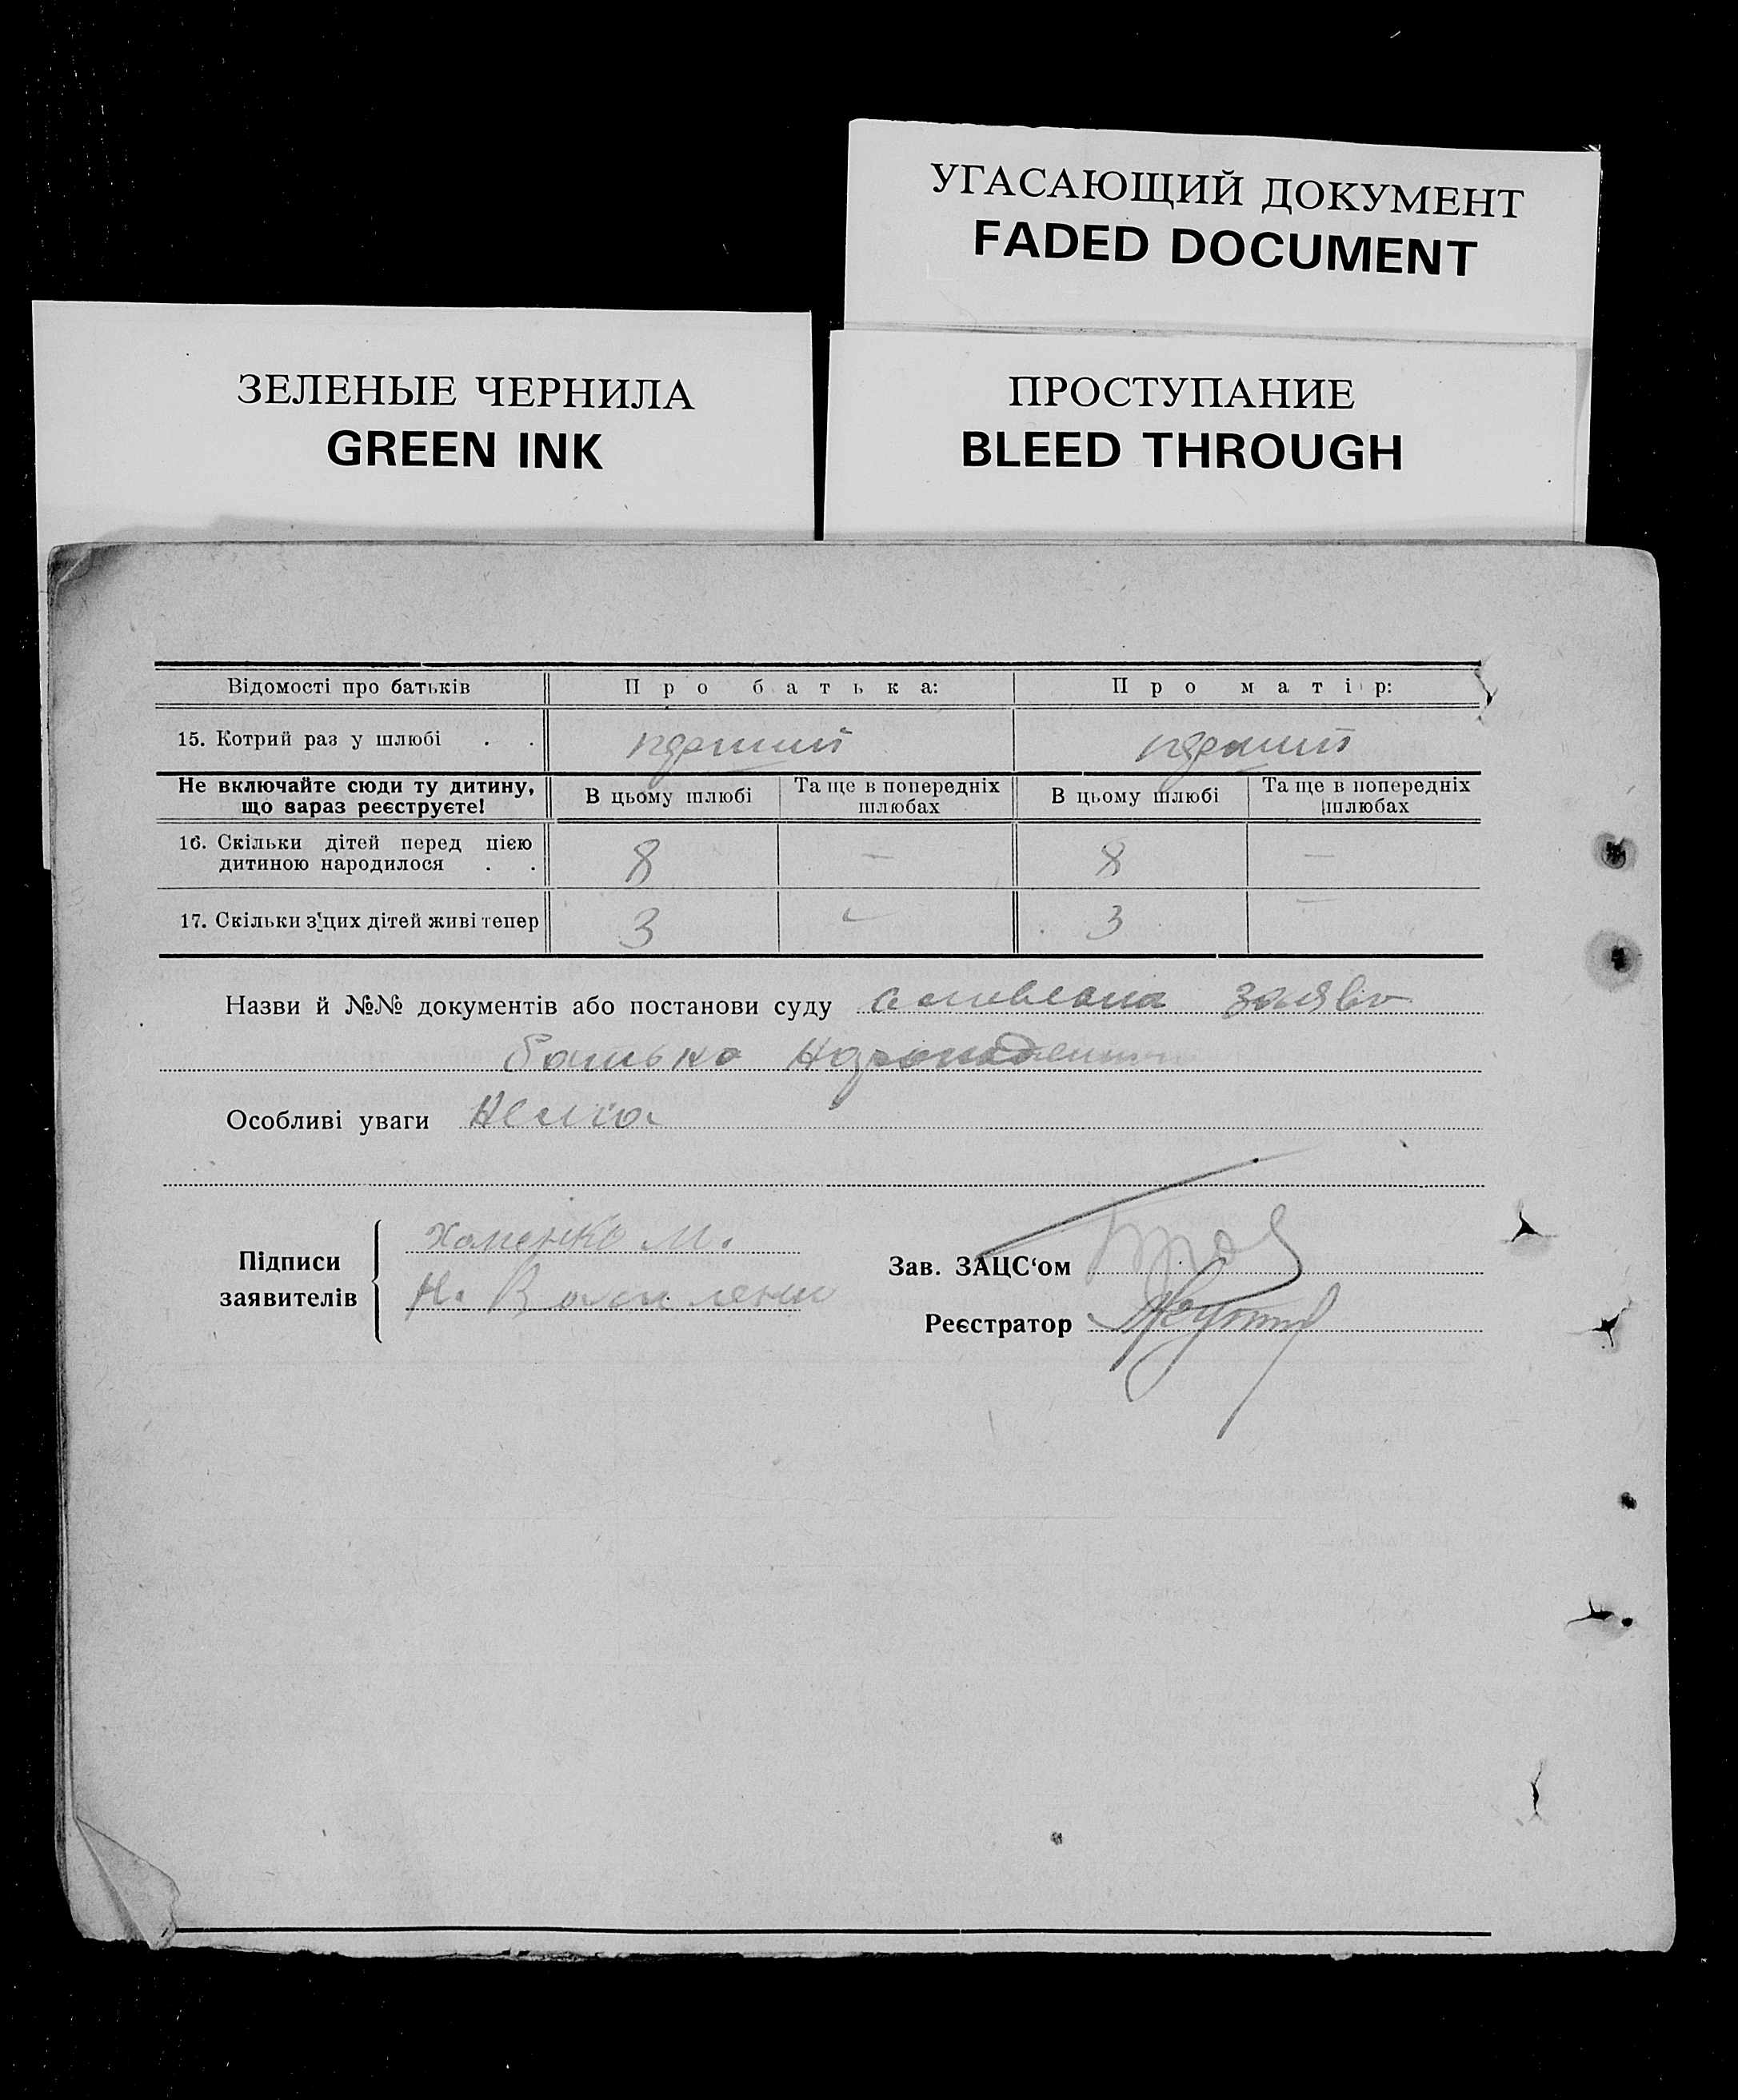 УГАСАЮЩИЙ ДОКУМЕНТ
FADED DOCUMENT
ЗЕЛЕНЫЕ ЧЕРНИЛА
GREEN INK
ПРОСТУПАНИЕ
BLEED THROUGH
Відомості про батьків Про батька: Про матір:
15. Котрий раз у шлюбі . . перший перший
Не включайте сюди ту дитину, що зараз реєструєте! В цьому шлюбі Та ще в попередніх шлюбах В цьому шлюбі Та ще в попередніх шлюбах
16. Скільки дітей перед цією дитиною народилося . . 8 — 8 —
17. Скільки з цих дітей живі тепер 3 — 3 —
Назви й №№ документів або постанови суду заява
батька
Особливі уваги Нема
Підписи заявителів
Хоменко М.
Н.
Зав. ЗАЦС‘ом
Реєстратор